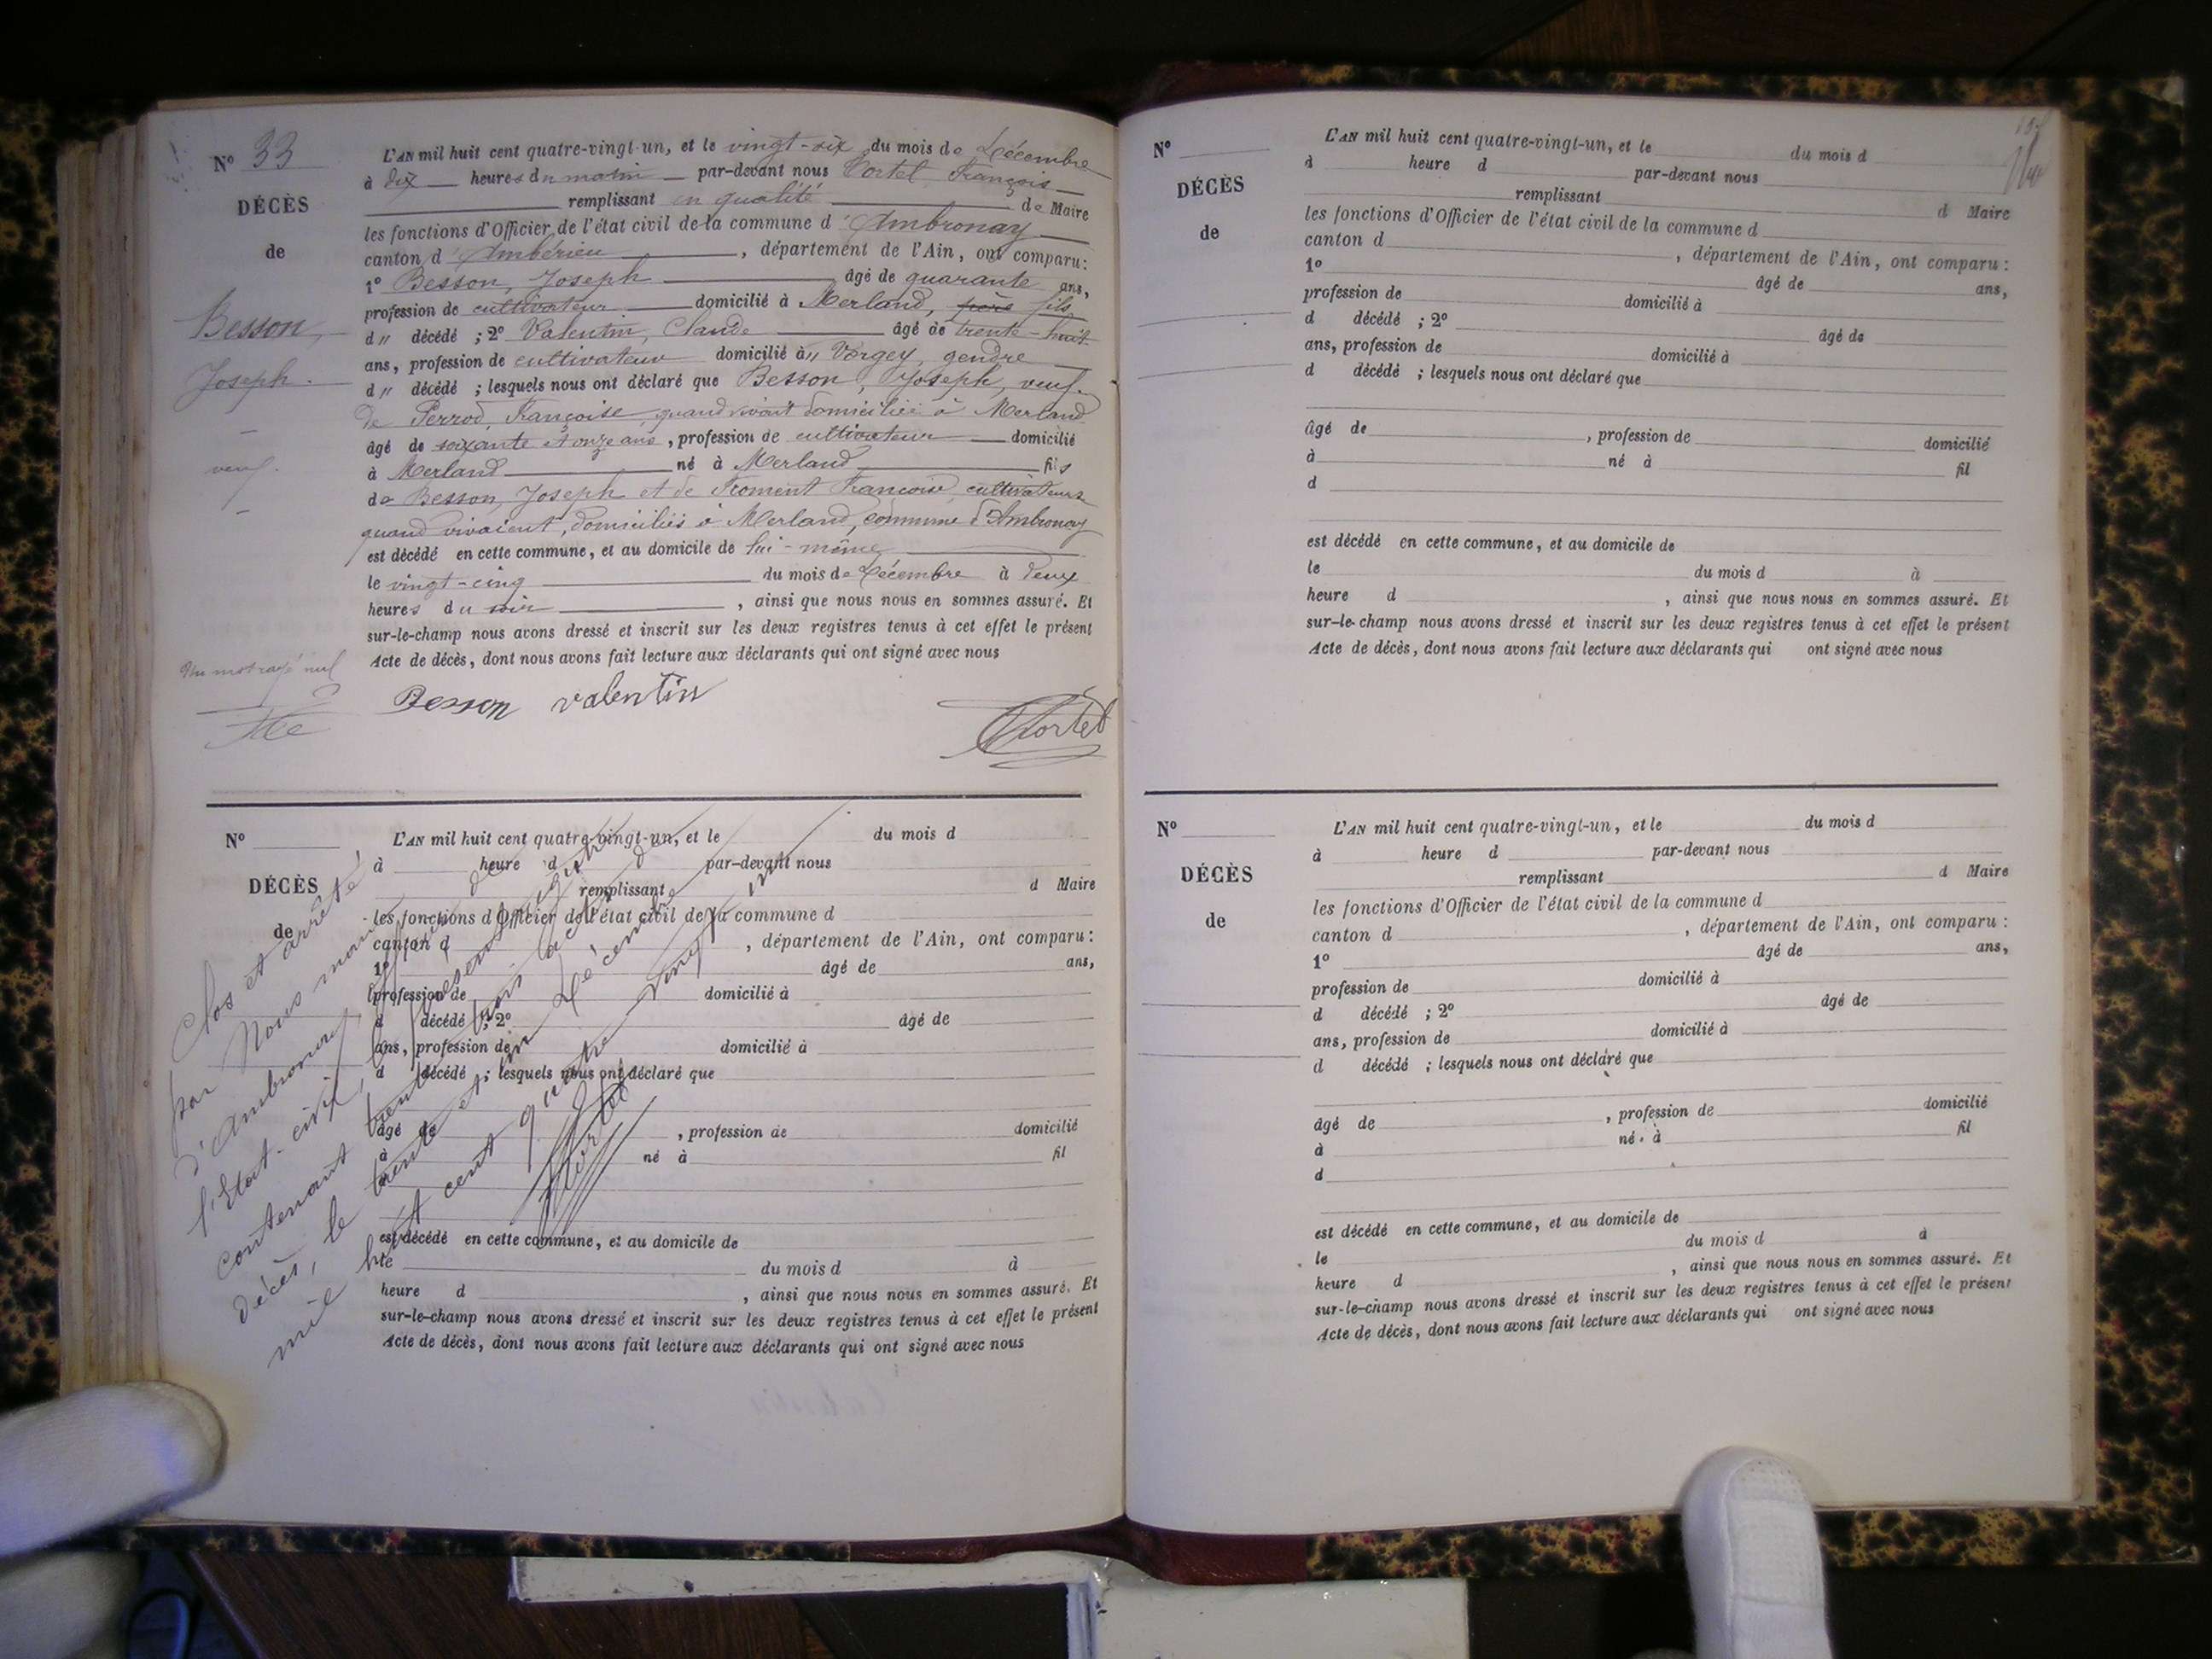 N° 33
DÉCÈS
de
Besson,
Joseph.
veuf.
Un mot rayé nul
L'AN mil huit cent quatre-vingt-un, et le vingt-six du mois de Décembre
à dix heures du matin par-devant nous Tortel François
remplissant en qualité de Maire
les fonctions d'Officier de l'état civil de la commune d'Ambronay
canton d'Ambérieu, département de l'Ain, ont comparu:
1° Besson, Joseph âgé de quarante ans,
profession de cultivateur domicilié à Merland, père fils
d " décédé ; 2° Valentin, Claude âgé de trente-huit
ans, profession de cultivateur domicilié à " Vorgey, gendre
d " décédé ; lesquels nous ont déclaré que Besson, Joseph, veuf
de Perrod, Françoise, quand vivait domiciliée à Merland
âgé de soixante et onze ans, profession de cultivateur domicilié
à Merland né à Merland fils
de Besson, Joseph et de Froment Françoise, cultivateurs
quand vivaient, domiciliés à Merland, commune d'Ambronay
est décédé en cette commune, et au domicile de lui-même
le vingt-cinq du mois de Décembre à deux
heures du soir, ainsi que nous nous en sommes assuré. Et
sur-le-champ nous avons dressé et inscrit sur les deux registres tenus à cet effet le présent
Acte de décès, dont nous avons fait lecture aux déclarants qui ont signé avec nous
Besson valentin
Tortel
N°
DÉCÈS
de
L'AN mil huit cent quatre-vingt-un, et le du mois d
à heure d par-devant nous
remplissant d Maire
les fonctions d'Officier de l'état civil de la commune d
canton d , département de l'Ain, ont comparu:
1° âgé de ans,
profession de domicilié à
d décédé ; 2° âgé de
ans, profession de domicilié à
d décédé ; lesquels nous ont déclaré que
âgé de , profession de domicilié
à né à fil
est décédé en cette commune, et au domicile de
le du mois d à
heure d , ainsi que nous nous en sommes assuré. Et
sur-le-champ nous avons dressé et inscrit sur les deux registres tenus à cet effet le présent
Acte de décès, dont nous avons fait lecture aux déclarants qui ont signé avec nous
Clos et arrêté
par Nous maire
d'Ambronay, officier de
l'Etat-civil, le présent registre
contenant trente trois actes de
décès, le trente et un Décembre
mil huit cent quatre vingt un
Tortel
N°
DÉCÈS
de
L'AN mil huit cent quatre-vingt-un, et le du mois d
à heure d par-devant nous
remplissant d Maire
les fonctions d'Officier de l'état civil de la commune d
canton d , département de l'Ain, ont comparu :
1° âgé de ans,
profession de domicilié à
d décédé ; 2° âgé de
ans, profession de domicilié à
d décédé ; lesquels nous ont déclaré que
âgé de , profession de domicilié
à né à fil
d
est décédé en cette commune, et au domicile de
le du mois d à
heure d , ainsi que nous nous en sommes assuré. Et
sur-le-champ nous avons dressé et inscrit sur les deux registres tenus à cet effet le présent
Acte de décès, dont nous avons fait lecture aux déclarants qui ont signé avec nous
N°
DÉCÈS
de
L'AN mil huit cent quatre-vingt-un, et le du mois d
à heure d par-devant nous
remplissant d Maire
les fonctions d'Officier de l'état civil de la commune d
canton d , département de l'Ain, ont comparu :
1° âgé de ans,
profession de domicilié à
d décédé ; 2° âgé de
ans, profession de domicilié à
d décédé ; lesquels nous ont déclaré que
âgé de , profession de domicilié
à né à fil
d
est décédé en cette commune, et au domicile de
le du mois d à
heure d , ainsi que nous nous en sommes assuré. Et
sur-le-champ nous avons dressé et inscrit sur les deux registres tenus à cet effet le présent
Acte de décès, dont nous avons fait lecture aux déclarants qui ont signé avec nous